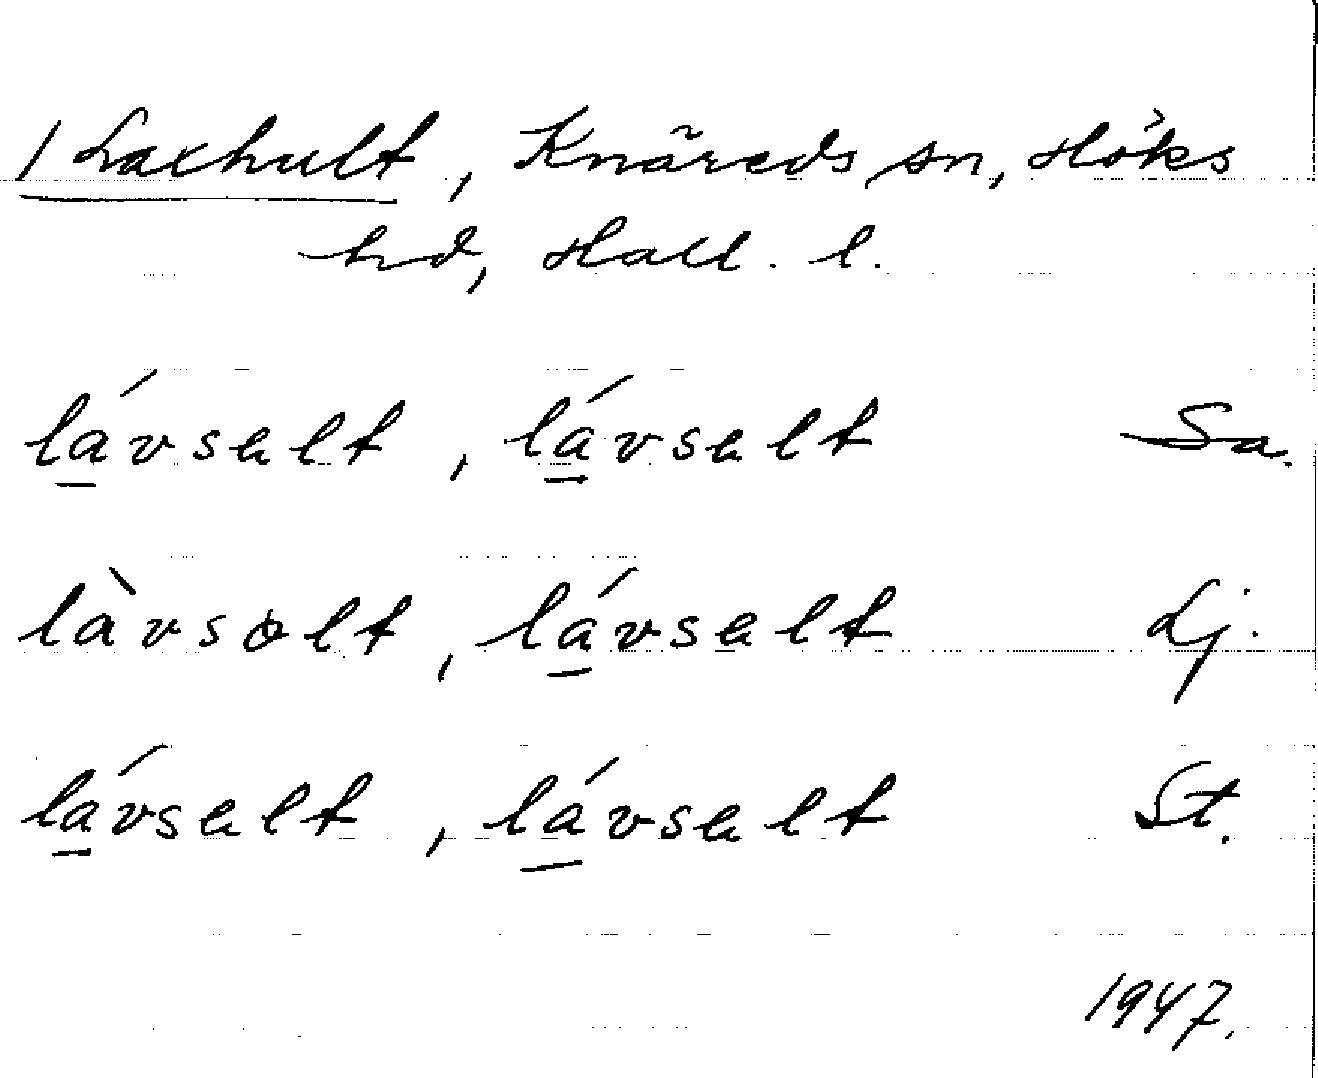 1 Laxhult, Knäreds sn, Höks
hd, Hall. l.
lávsalt, lávsalt Sa.
làvsolt, lávsalt Lj.
lávsalt, lávsalt St.
1947.